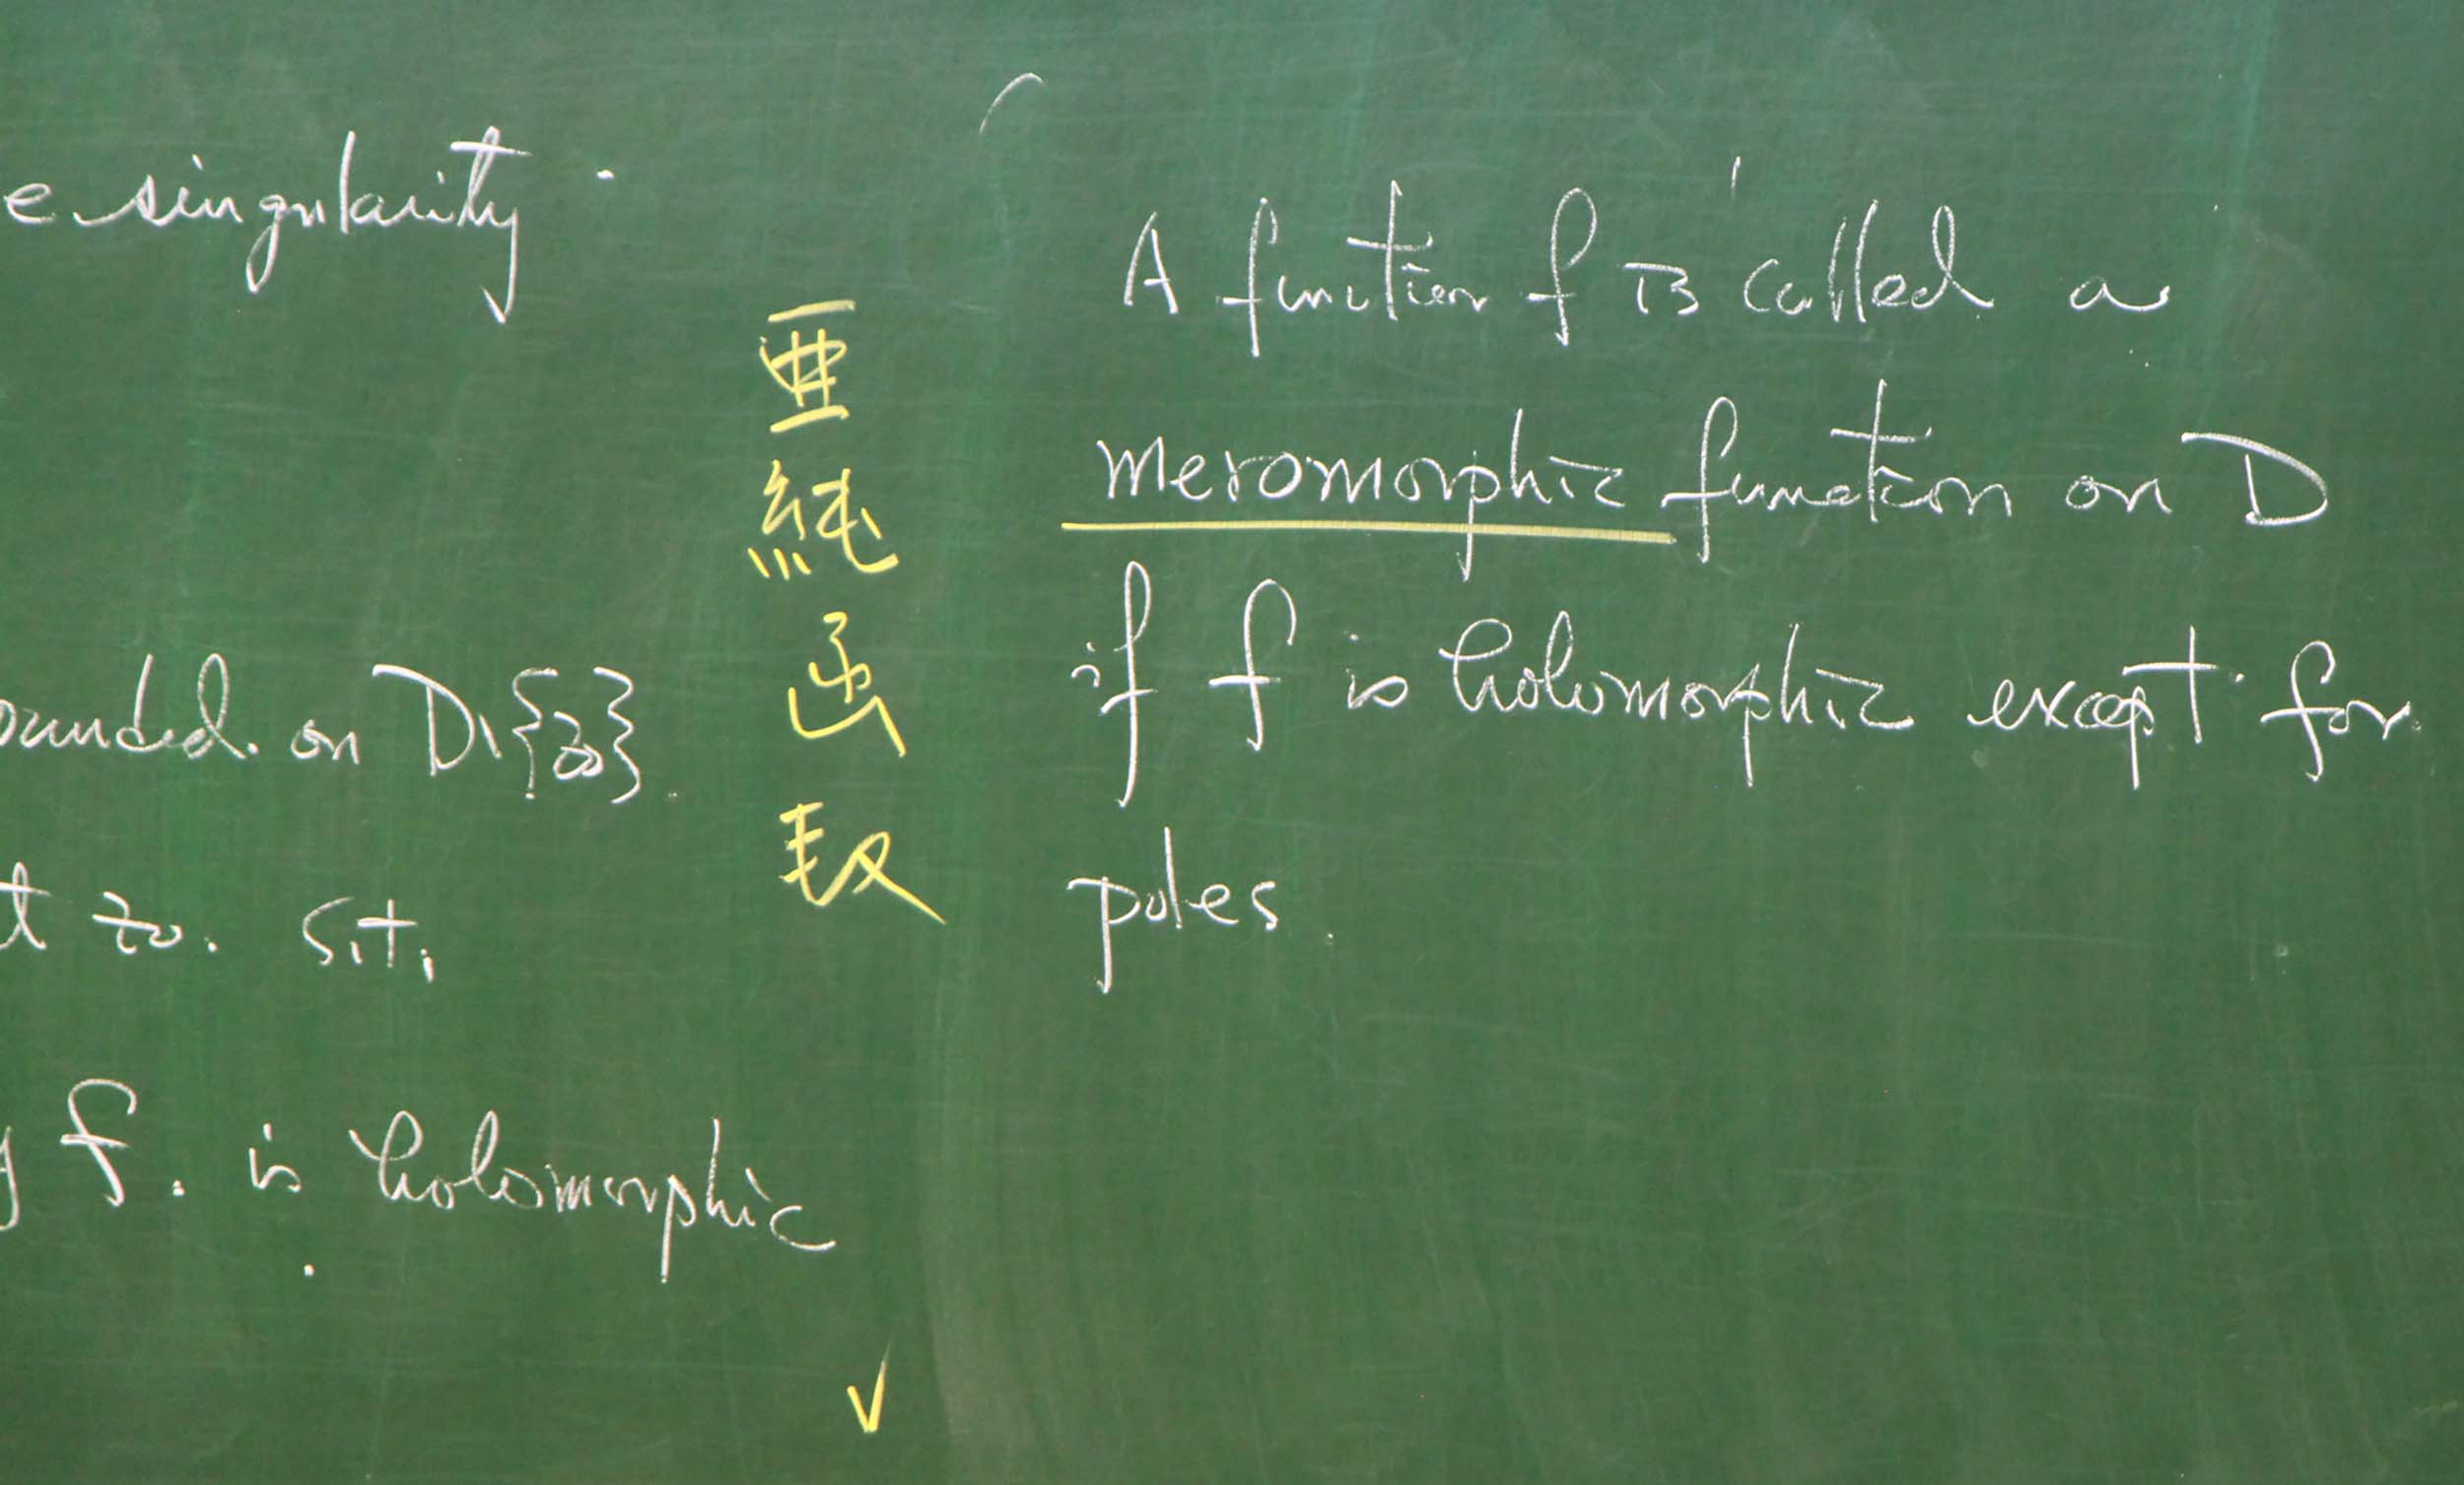 e singularity
ounded on D\{z0}.
t z0. s.t.
f. is holomorphic
亞純函數
A function f is called a
meromorphic function on D
if f is holomorphic except for
poles.